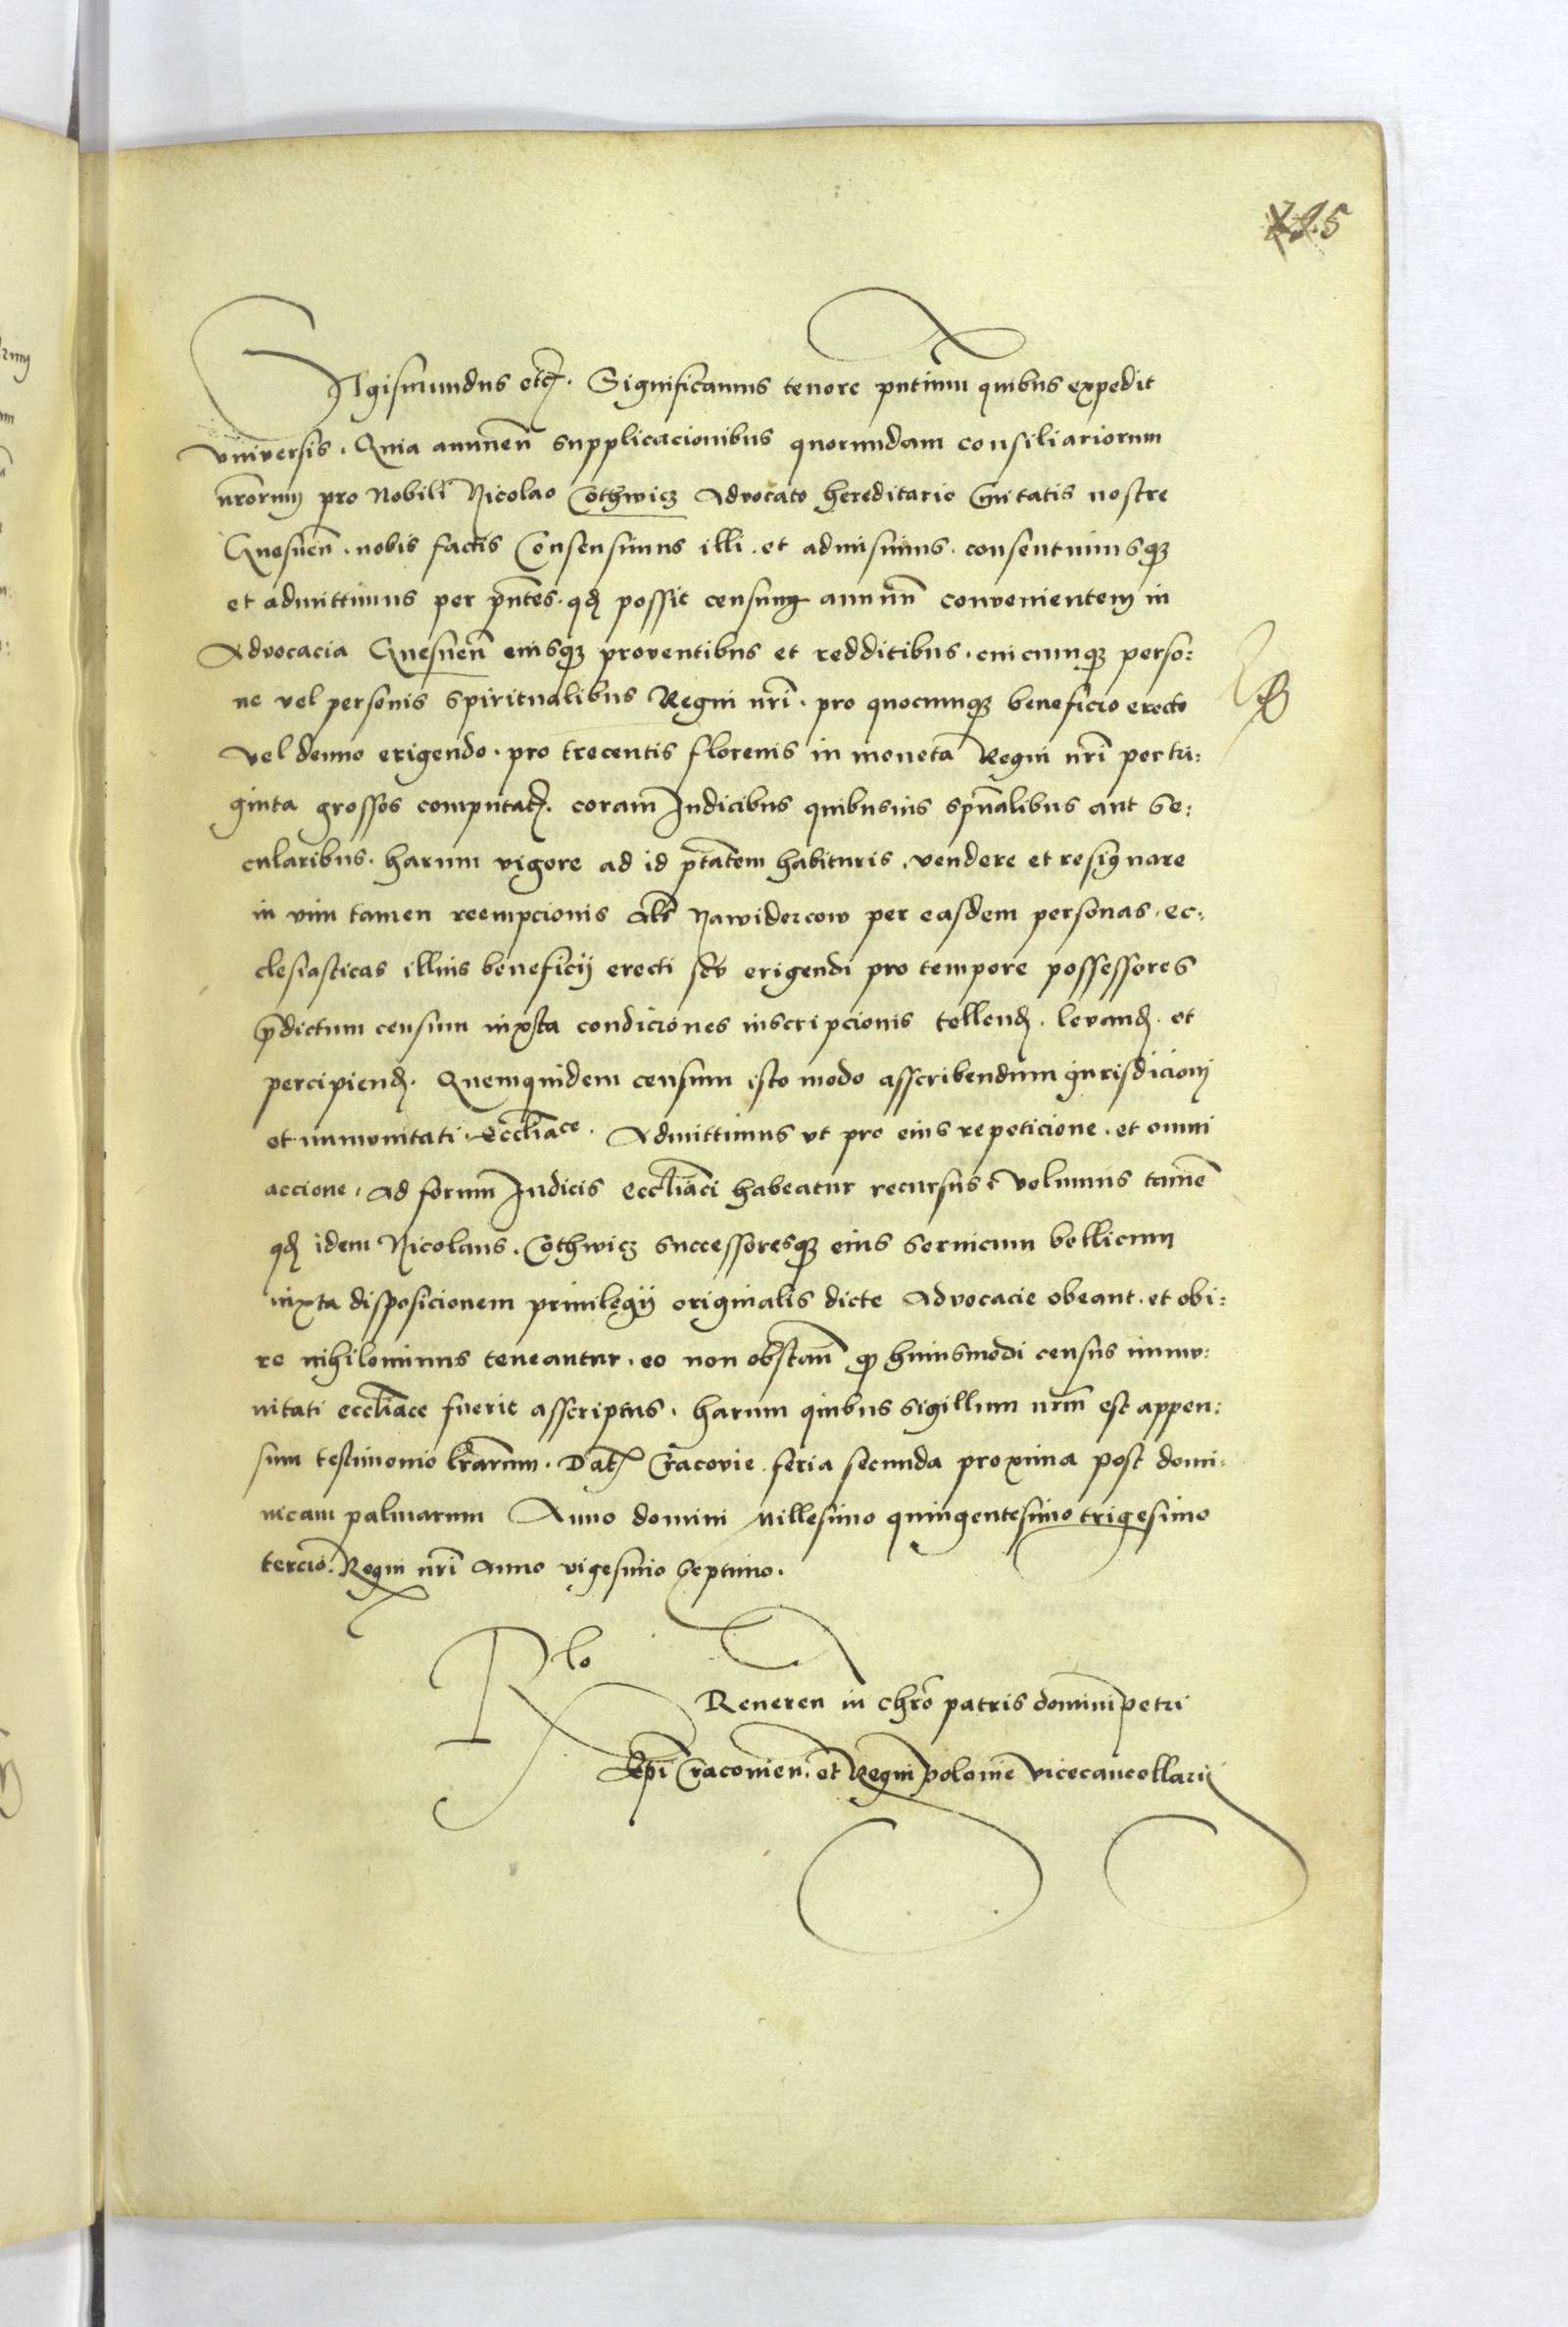 Sigismundus etc. Significamus tenore pntium quibus expedit
vniversis. Quia annuen supplicacionibus quorundam consiliariorum
nrorum pro Nobili Nicolao Cothwicz Advocato hereditario Civitatis nostre
Gnesnen. nobis factis Consensimus illi. et admisimus. consentimusq
et admittimus per pntes. qd possit censum annuum convenientem in
Advocacia Gnesnen eiusq proventibus et redditibus. cuicumq perso:
ne vel personis spiritualibus Regni nri. pro quocumq beneficio erecto
vel denuo erigendo. pro trecentis florenis in moneta Regni nri per tri:
ginta grossos computat. coram Iudicibus quibusuis spualibus aut se:
cularibus. harum vigore ad id ptatem habituris. vendere et resignare
in vim tamen reempcionis als Nawidercow per easdem personas. ec:
clesiasticas illius beneficij erecti seu erigendi pro tempore possessores
pdictum censum iuxta condiciones inscripcionis tollend. levand. et
percipiend. Quemquidem censum isto modo asscribendum iurisdicioni
et immunitati. ecclliace. Admittimus vt pro eius repeticione. et omni
accione. ad forum Iudicis eccliaci habeatur recursus. volumus tamen
qd idem Nicolaus. Cothwicz successoresq eius seruicium bellicum
iuxta disposicionem priuilegij originalis dicte Advocacie obeant. et obi:
re nihilominus teneantur. eo non obstan q huiusmodi census immu:
nitati eccliace fuerit asscriptus. harum quibus sigillum nrm est appen:
sum testimonio lrarum. Dat Cracovie feria secunda proxima post domi:
nicam palmarum Anno domini Millesimo quingentesimo trigesimo
tercio. Regni nri Anno vigesimo septimo.
Rlo
Reveren in chro patris domini Petri
Epi Cracovien. et Regni Polonie vicecancellarij